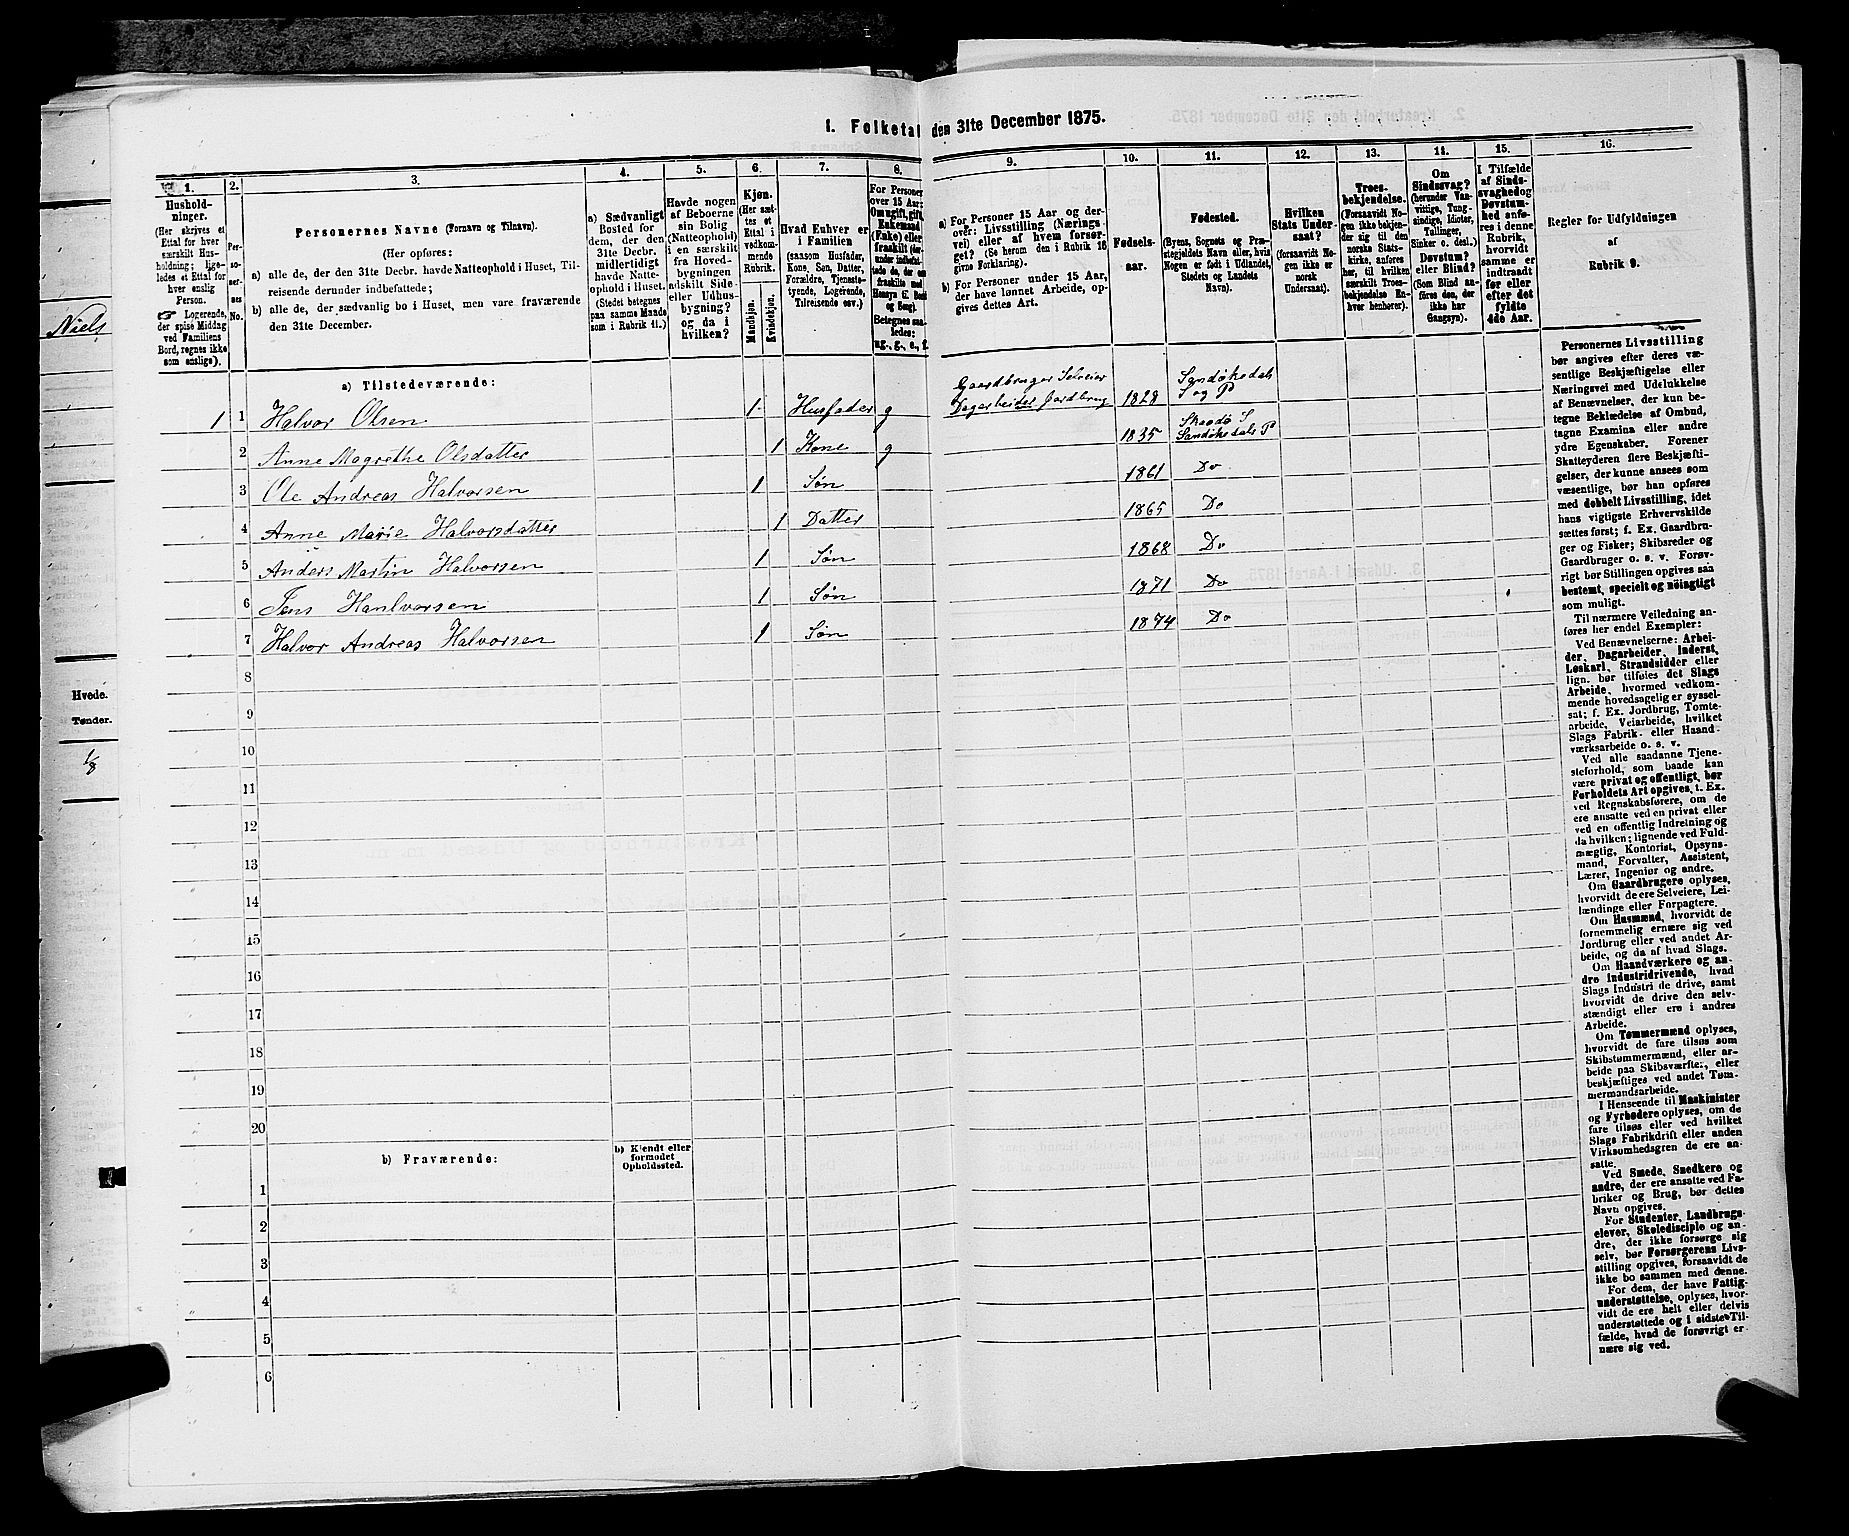 1. Folketal den 31te December 1875.
Niels
Hvede.
Tønder.
1/8
1.
Hushold-
ninger.
(Her skrives et
Ettal for hver
særskilt Hus-
holdning; lige-
ledes et Ettal for
hver enslig
Person.
☞ Logerende,
der spise Middag
ved Familiens
Bord, regnes ikke
som enslige).
2.
Per-
so-
ner-
nes
No.
3.
Personernes Navne (Fornavn og Tilnavn).
(Her opføres:
a) alle de, der den 31te Decbr. havde Natteophold i Huset, Til-
reisende derunder indbefattede;
b) alle de, der sædvanlig bo i Huset, men vare fraværende
den 31te December.
4.
a) Sædvanligt
Bosted for
dem, der den
31te Decbr.
midlertidigt
havde Natte-
ophold i Huset.
(Stedet betegnes
paa samme Maade
som i Rubrik 11.)
5.
Havde nogen
af Beboerne
sin Bolig
(Natteophold)
i en særskilt
fra Hoved-
bygningen
adskilt Side-
eller Udhus-
bygning?
og da i
hvilken?
6.
Kjøn.
(Her sæt-
tes et
Ettal i
vedkom-
mende
Rubrik.
Mandkjøn.
Kvindekjøn.
7.
Hvad Enhver er
i Familien
(saasom Husfader,
Kone, Søn, Datter,
Forældre, Tjeneste-
tyende, Logerende,
Tilreisende osv.)
8.
For Personer
over 15 Aar:
Om ugift, gift,
Enkemand
(Enke) eller
fraskilt
Betegnes saa-
ledes:
ug., g., e., f.
9.
a) For Personer 15 Aar og der-
over: Livsstilling (Nærings-
vei) eller af hvem forsør-
get? (Se herom den i Rubrik 16
givne Forklaring).
b) For Personer under 15 Aar,
der have lønnet Arbeide, op-
gives dettes Art.
10.
Fødsels-
aar.
11.
Fødested.
(Byens, Sognets og Præ-
stegjeldets Navn eller, hvis
Nogen er født i Udlandet,
Stedets og Landets
Navn).
12.
Hvilken
Stats Under-
saat?
(forsaavidt No-
gen ikke er
norsk
Undersaat).
13.
Troes-
bekjendelse.
(Forsaavidt No-
gen ikke bekjen-
der sig til den
norske Stats-
kirke, anføres
her, til hvilken
særskilt Troes-
bekjendelse En-
hver henhører).
14.
Om
Sindssvag?
(herunder Van-
vittige, Tung-
sindige, Idioter,
Tullinger,
Sinker o. desl.)
Døvstum?
eller Blind?
(Som Blind an-
føres den, der
ikke har
Gangsyn).
15.
I Tilfælde
af Sinds-
svaghed og
Døvstum-
hed anfø-
res i denne
Rubrik,
hvorvidt
samme er
indtraadt
før eller
efter det
fyldte
4de Aar.
16.
Regler for Udfyldningen
af
Rubrik 9.
a) Tilstedeværende:
Gaardbruger Selveier
Sandøkedals
1 1 Halvor Olsen 1 Husfader g Dagarbeider Jordbrug 1828 S og P
Skaadø S
2 Anne Magrethe Olsdatter 1 Kone g 1835 Sandøkedals P
3 Ole Andreas Halvorsen 1 Søn 1861 Do
4 Anne Marie Halvorsdatter 1 Datter 1865 Do
5 Anders Martin Halvorsen 1 Søn 1868 Do
6 Jens Hanlvorsen 1 Søn 1871 Do
7 Halvor Andreas Halvorsen 1 Søn 1874 Do
8
9
10
11
12
13
14
15
16
17
18
19
20
b) Fraværende:
b) Kjendt eller
formodet
Opholdssted.
1
2
3
4
5
6
Personernes Livsstilling
bør angives efter deres væ-
sentlige Beskjæftigelse eller
Næringsvei med Udelukkelse
af Benævnelser, der kun be-
tegne Beklædelse af Ombud,
tagne Examina eller andre
ydre Egenskaber. Forener
Skatteyderen flere Beskjæfti-
gelser, der kunne ansees som
væsentlige, bør han opføres
med dobbelt Livsstilling, idet
hans vigtigste Erhvervskilde
sættes først; f. Ex. Gaardbru-
ger og Fisker; Skibsreder og
Gaardbruger o. s. v. Forøv-
rigt bør Stillingen opgives saa
bestemt, specielt og nøiagtigt
som muligt.
Til nærmere Veiledning an-
føres her endel Exempler:
Ved Benævnelserne: Arbei-
der, Dagarbeider, Inderst,
Løskarl, Strandsidder eller
lign. bør tilføies det Slags
Arbeide, hvormed vedkom-
mende hovedsagelig er syssel-
sat; f. Ex. Jordbrug, Tomte-
arbeide, Veiarbeide, hvilket
Slags Fabrik- eller Haand-
værksarbeide o. s. v.
Ved alle saadanne Tjene-
steforhold, som baade kan
være privat og offentligt, bør
Forholdets Art opgives, f. Ex.
ved Regnskabsførere, om de
ere ansatte ved en privat eller
ved en offentlig Indretning og
da hvilken; lignende ved Fuld-
mægtig, Kontorist, Opsyns-
mand, Forvalter, Assistent,
Lærer, Ingeniør og andre.
Om Gaardbrugere oplyses,
hvorvidt de ere Selveiere, Lei-
lændinge eller Forpagtere.
Om Husmænd, hvorvidt de
fornemmelig ernære sig ved
Jordbrug eller ved andet Ar-
beide, og da af hvad Slags.
Om Haandværkere og an-
dre Industridrivende, hvad
Slags Industri de drive, samt
hvorvidt de drive den selv-
stændigt eller ere i andres
Arbeide.
Om Tømmermænd oplyses,
hvorvidt de fare tilsøs som
Skibstømmermænd, eller ar-
beide paa Skibsværfter, eller
beskjæftiges ved andet Tøm-
mermandsarbeide.
I Henseende til Maskinister
og Fyrbødere oplyses, om de
fare tilsøs eller ved hvilket
Slags Fabrikdrift eller anden
Virksomhedsgren de ere an-
satte.
Ved Smede, Snedkere og
andre, der ere ansatte ved Fa-
briker og Brug, bør dettes
Navn opgives.
For Studenter, Landbrugs-
elever, Skoledisciple og an-
dre, der ikke forsørge sig
selv, bør Forsørgerens Livs-
stilling opgives, forsaavidt de
ikke bo sammen med denne.
For dem, der have Fattig-
understøttelse, oplyses, hvor-
vidt de ere helt eller delvis
understøttede og i sidste Til-
fælde, hvad de forøvrigt er-
nære sig ved.